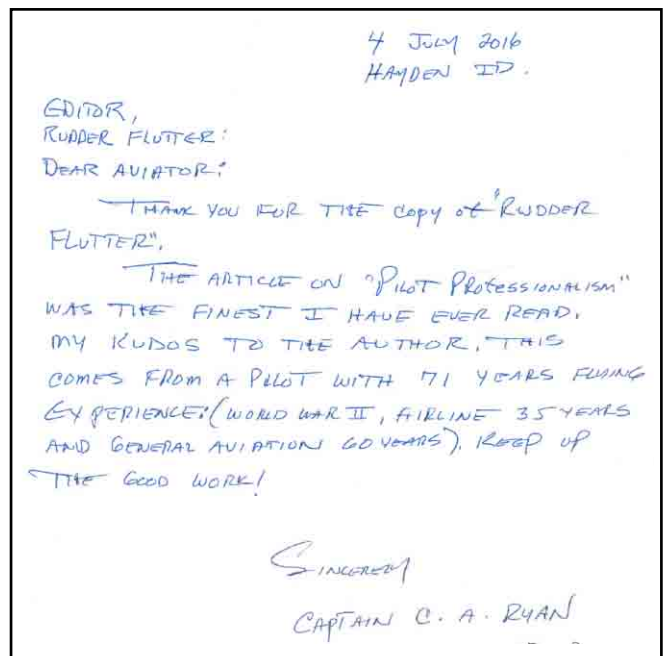 4 JULY 2016
HAYDEN ID.
EDITOR,
RUDDER FLUTTER:
DEAR AVIATOR:
THANK YOU FOR THE COPY OF "RUDDER
FLUTTER".
THE ARTICLE ON "PILOT PROFESSIONALISM"
WAS THE FINEST I HAVE EVER READ.
MY KUDOS TO THE AUTHOR. THIS
COMES FROM A PILOT WITH 71 YEARS FLYING
EXPERIENCE: (WORLD WAR II, AIRLINE 35 YEARS
AND GENERAL AVIATION 60 YEARS). KEEP UP
THE GOOD WORK!
SINCERELY
CAPTAIN C. A. RYAN